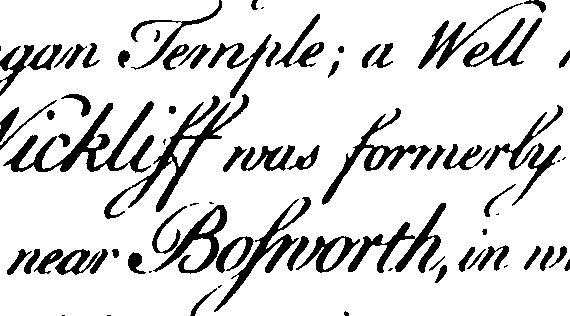 gan Temple; a Well
Wickliff was formerly
near Bosworth, in